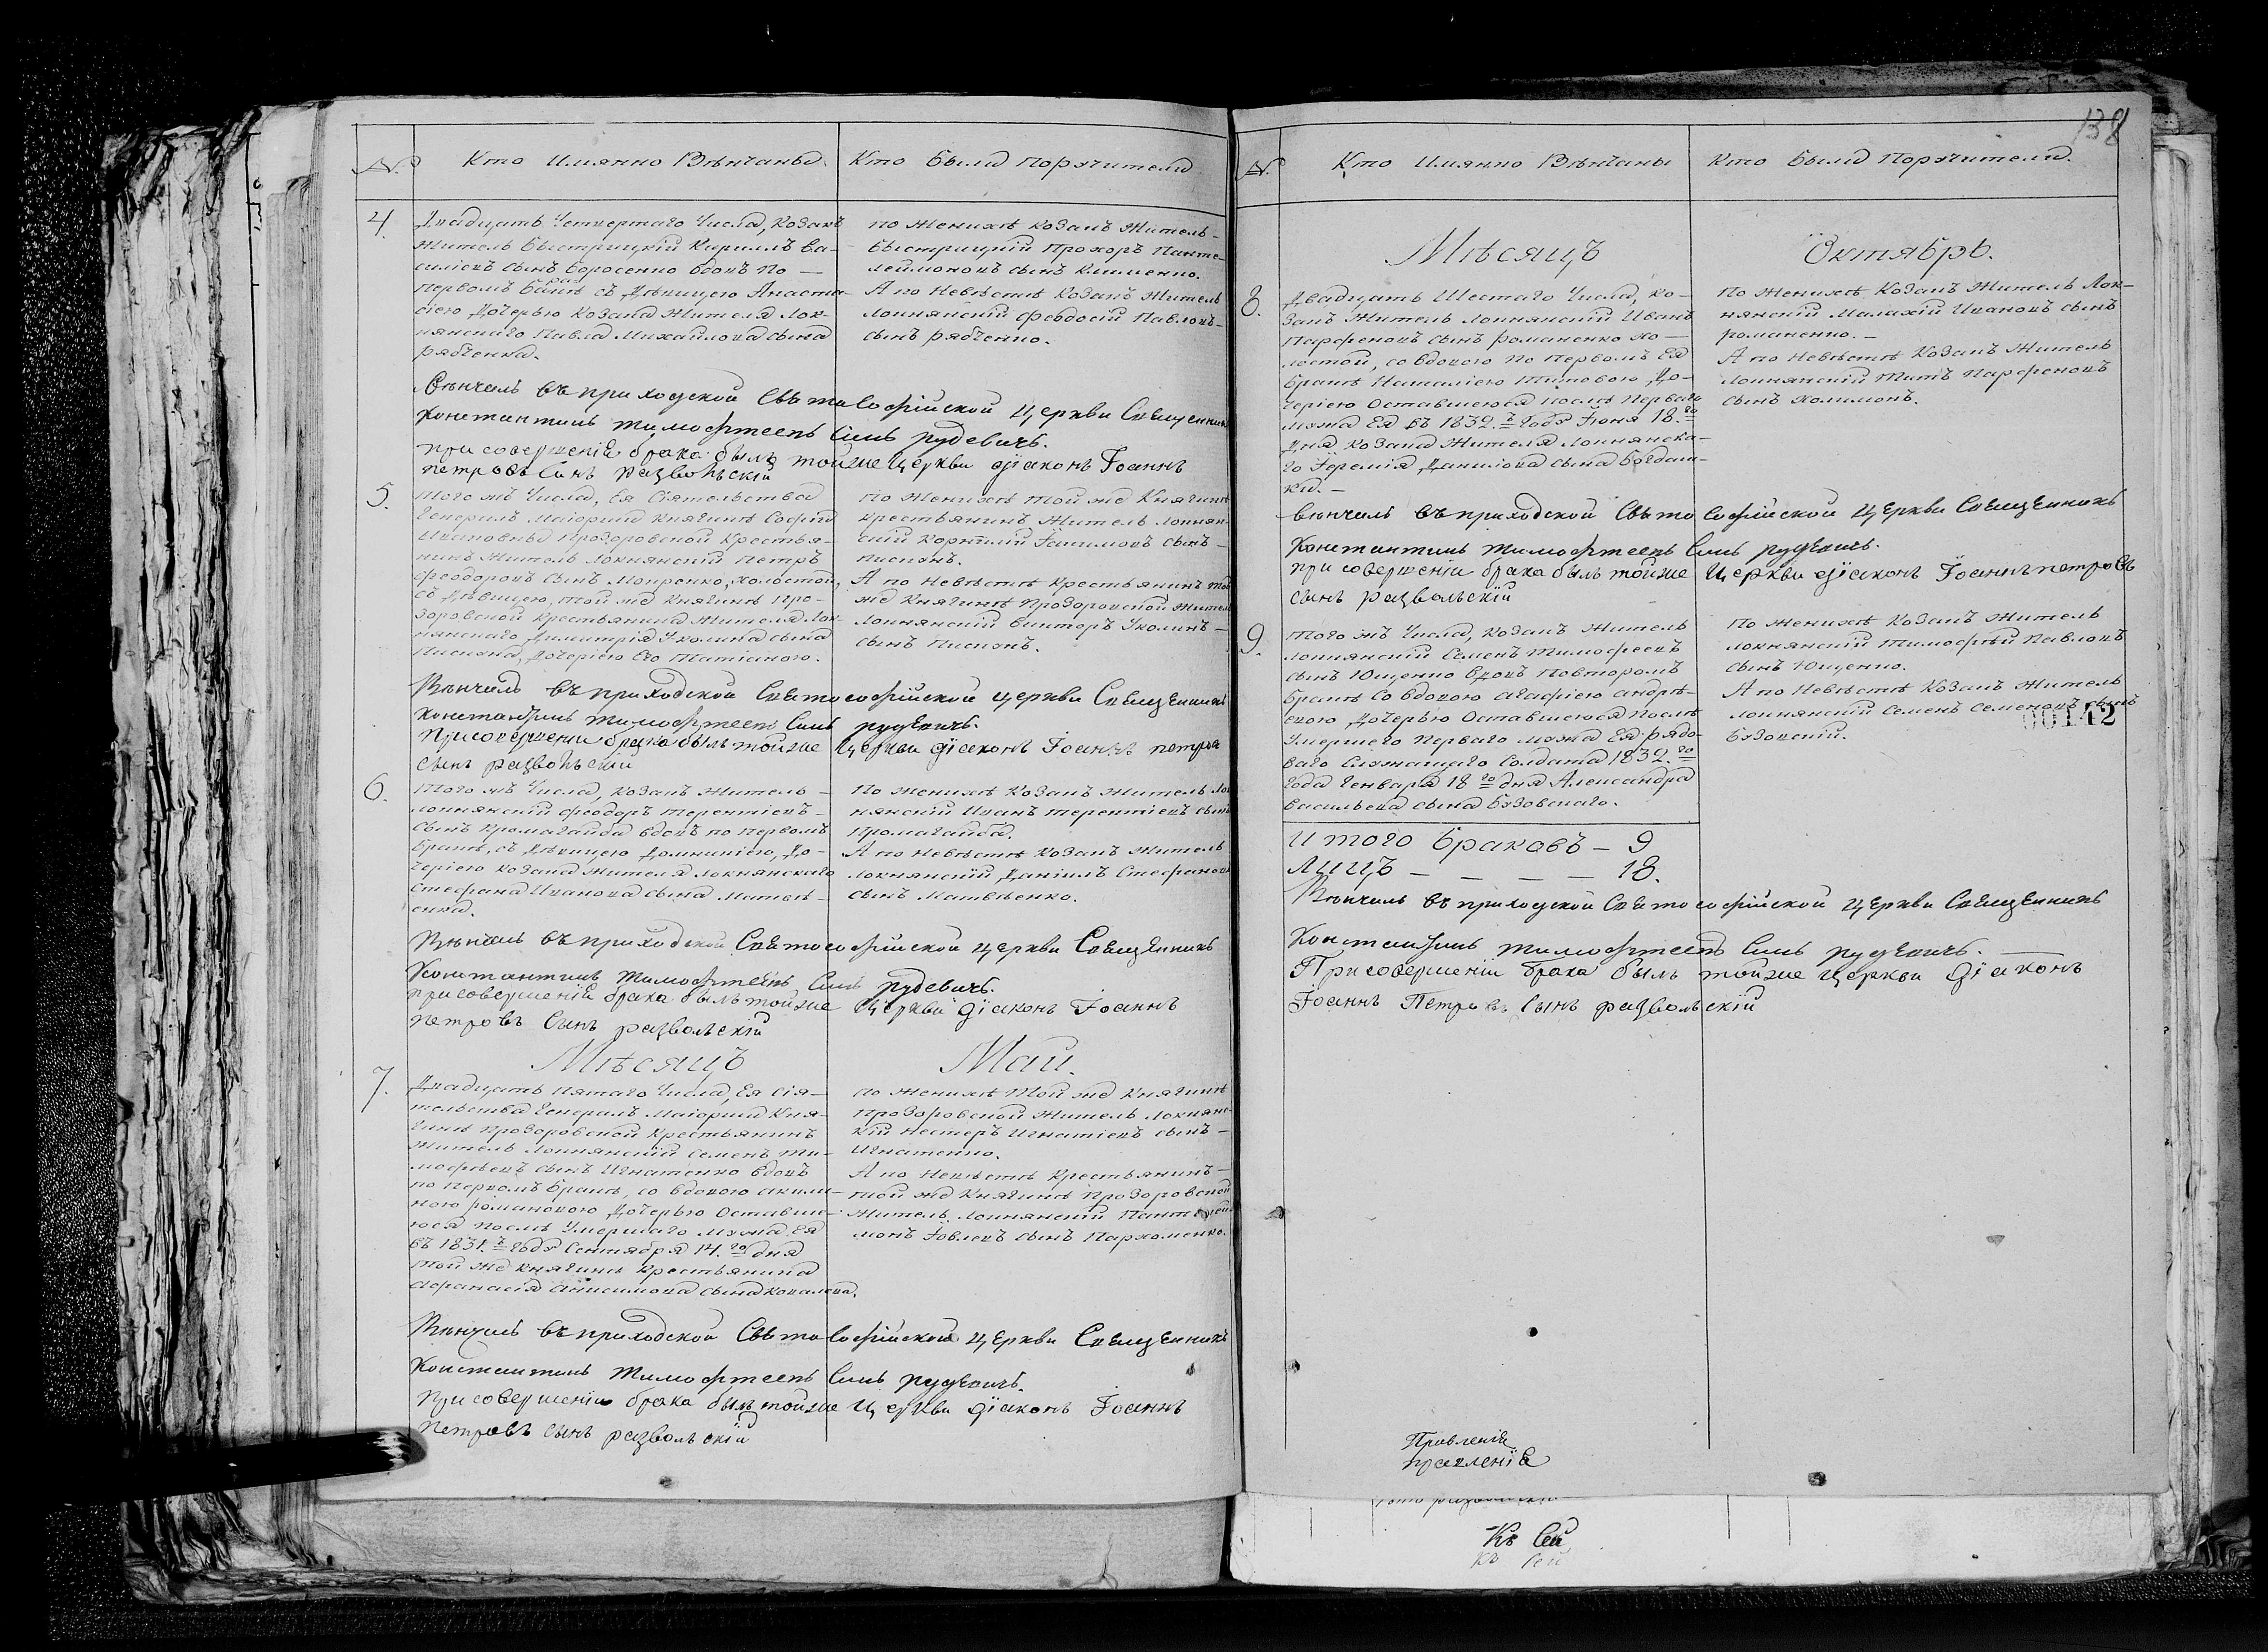 №. Кто Имянно Вѣнчаны. Кто Были Поручители
4. Двадцать Четвертаго Числа, Козакъ
Житель Быстрицкій Кириллъ Ва-
силіевъ сынъ Боросенко вдовъ По —
Первомъ Бракѣ съ Дѣвицею Анаста-
сіею Дочерью Козака Жителя Лок-
нянскаго Павла Михайлова сына
Рябченка.
по Женихѣ Козакъ Житель-
Быстрицкій Прохоръ Панте-
леймоновъ сынъ Клименко.
А по Невѣстѣ Козакъ Житель
Локнянскій Феодосій Павловъ-
сынъ Рябченко.
Вѣнчалъ въ приходской Свѣто Софійской церкви Священникъ
Константинъ Тимофѣевъ Сынъ Рудевичъ.
при совершеніе брака былъ тойже церкви діаконъ Іоаннъ
Петровъ Сынъ Развольскій
5. Того жъ Числа, Ея Сіятельства
Генералъ Маіорши Княгинѣ Софіи
Ивановны Прозоровской Крестья-
нинъ Житель Локнянскій Петръ
Феодоровъ сынъ Мокренко, холостой,
съ Дѣвицею, той же Княгинѣ Про-
зоровской Крестьянина Жителя Лок-
нянскаго Димитрія Уколина сына
Пискуна, Дочеріею Его Татіаною.
по Женихѣ той же Княгинѣ
Крестьянинъ Житель Локнян-
скій Корнилій Іакимовъ сынъ-
Пискунъ.
А по Невѣстѣ Крестьянинъ той
же Княгинѣ Прозоровской Житель
Локнянскій Викторъ Уколинъ —
сынъ Пискунъ.
Вѣнчалъ въ приходской Свѣтософійской церкви Священникъ
Константинъ Тимофѣевъ Сынъ Рудевичъ.
при совершеніи брака былъ тойже Церкви діаконъ Іоаннъ Петровъ
сынъ Развольскій
6. Того жъ Числа, Козакъ Житель —
Локнянскій Феодоръ Терентіевъ —
Сынъ Промагайба вдовъ по Первомъ
Бракѣ, съ Дѣвицею Домникіею, До-
черіею Козака Жителя Локнянскаго
Стефана Иванова сына Матвѣ-
енка.
По Женихѣ Козакъ Житель Лок-
нянскій Иванъ Терентіевъ сынъ
Промагайба.
А по Невѣстѣ Козакъ Житель
Локнянскій Даніилъ Стефановъ
сынъ Матвѣенко.
Вѣнчалъ въ приходской Свѣтософійской церкви Священникъ
Константинъ Тимофѣевъ Сынъ Рудевичъ.
при совершеніе брака былъ тойже Церкви діаконъ Іоаннъ
Петровъ Сынъ Развольскій
Мѣсяцъ Май.
7. Двадцать Пятаго Числа, Ея Сія-
тельства Генералъ Маіорши Кня-
гинѣ Прозоровской Крестьянинъ
Житель Локнянскій Семенъ Ти-
мофѣевъ сынъ Игнатенко Вдовъ
по Первомъ Бракѣ, со Вдовою Акили-
ною Романовою Дочерью Оставше-
юся послѣ Умершаго мужа Ея
въ 1831.ъ Годѣ Сентября 14.го дня
той же Княгинѣ Крестьянина
Афанасія Анисимова сына Ковалева.
по Женихѣ той же Княгинѣ
Прозоровской Житель Локнянс-
кій Нестеръ Игнатіевъ сынъ —
Игнатенко.
А по Невѣстѣ Крестьянинъ —
той же Княгинѣ Прозоровской
Житель Локнянскій Пантелей-
монъ Іовлевъ сынъ Пархоменко.
Вѣнчалъ въ приходской Свѣто Софійской церкви Священникъ
Константинъ Тимофѣевъ Сынъ Рудевичъ.
при совершеніи брака былъ тойже церкви діаконъ Іоаннъ
Петровъ сынъ Развольскій
138
№. Кто Имянно Вѣнчаны Кто Были Поручители.
Мѣсяцъ Октябрь.
8. Двадцать Шестаго Числа, Ко-
закъ Житель Локнянскій Иванъ
Парфеновъ сынъ Романенко хо-
лостой, со Вдовою по Первомъ Ея
Бракѣ Наталіею Титовою До-
черіею Оставшеюся послѣ Перваго
мужа Ея въ 1832.ъ Годѣ Іюня 18.го
Дня Козака Жителя Локнянска-
го Іеремія Данилова сына Богдаш-
ки. —
По Женихѣ Козакъ Житель Лок-
нянскій Малахій Ивановъ сынъ
Романенко. —
А по Невѣстѣ Козакъ Житель
Локнянскій Титъ Парфеновъ
сынъ Холимонъ.
Вѣнчалъ въ приходской Свѣто Софійской церкви Священникъ
Константинъ Тимофѣевъ Сынъ Рудевичъ.
при совершеніи брака былъ тойже Церкви діаконъ Іоаннъ Петровъ
сынъ Развольскій
9. Того жъ Числа, Козакъ Житель
Локнянскій Семенъ Тимофеевъ
сынъ Ющенко Вдовъ Повторомъ
Бракѣ Со Вдовою Агафіею Андрѣ-
евою Дочерью Оставшеюся послѣ
Умершего Перваго мужа Ея Рядо-
ваго Служащаго Солдата 1832.го
Года Генваря 18го дня Александра
Васильева сына Бузовскаго.
По Женихѣ Козакъ Житель
Локнянскій Тимофѣй Павловъ
сынъ Ющенко.
А по Невѣстѣ Козакъ Житель
Локнянскій Семенъ Семеновъ сынъ
Бузовскій.
00142
Итого Браковъ — 9
Лицъ — — — — 18.
Вѣнчалъ въ приходской Свѣто софійской церкви Священникъ
Константинъ Тимофѣевъ Сынъ Рудевичъ.
При совершеніи брака былъ тойже церкви діаконъ
Іоаннъ Петровъ Сынъ Развольскій
Правленіе
правленіе
Къ Сей
Къ Сей